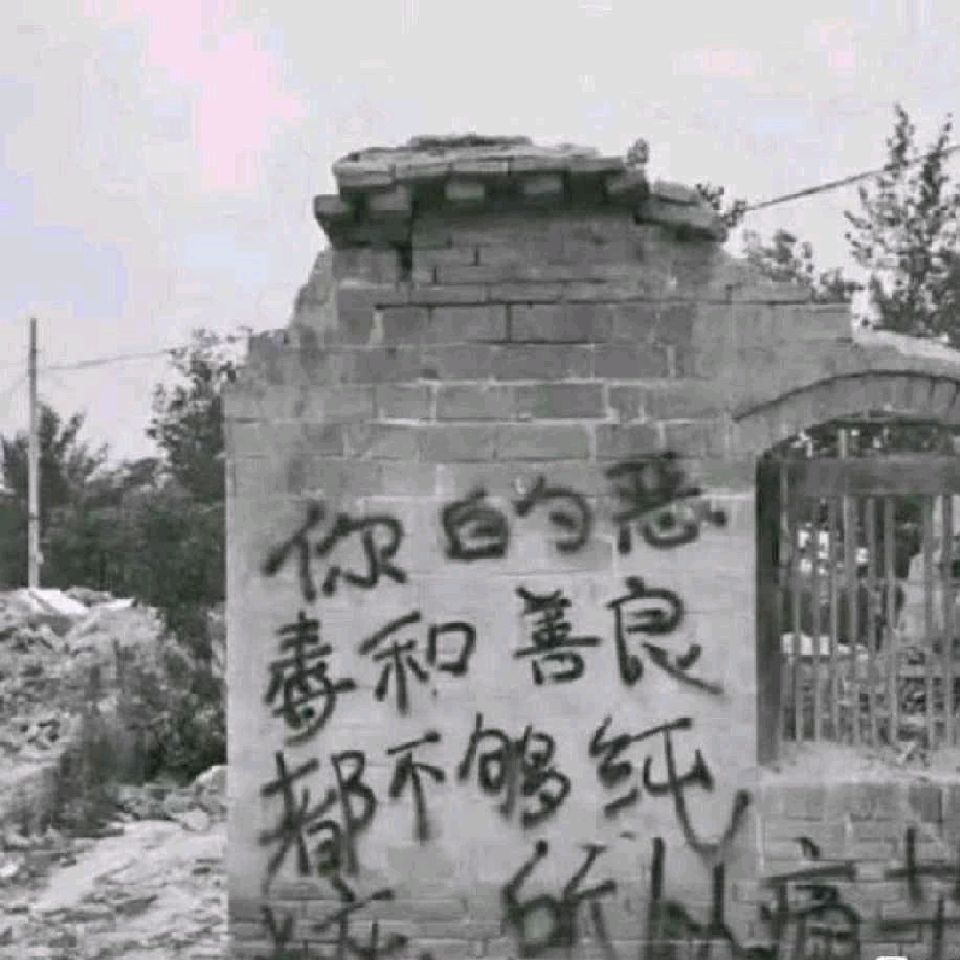 你的恶
毒和善良
都不够纯
粹 所以痛苦